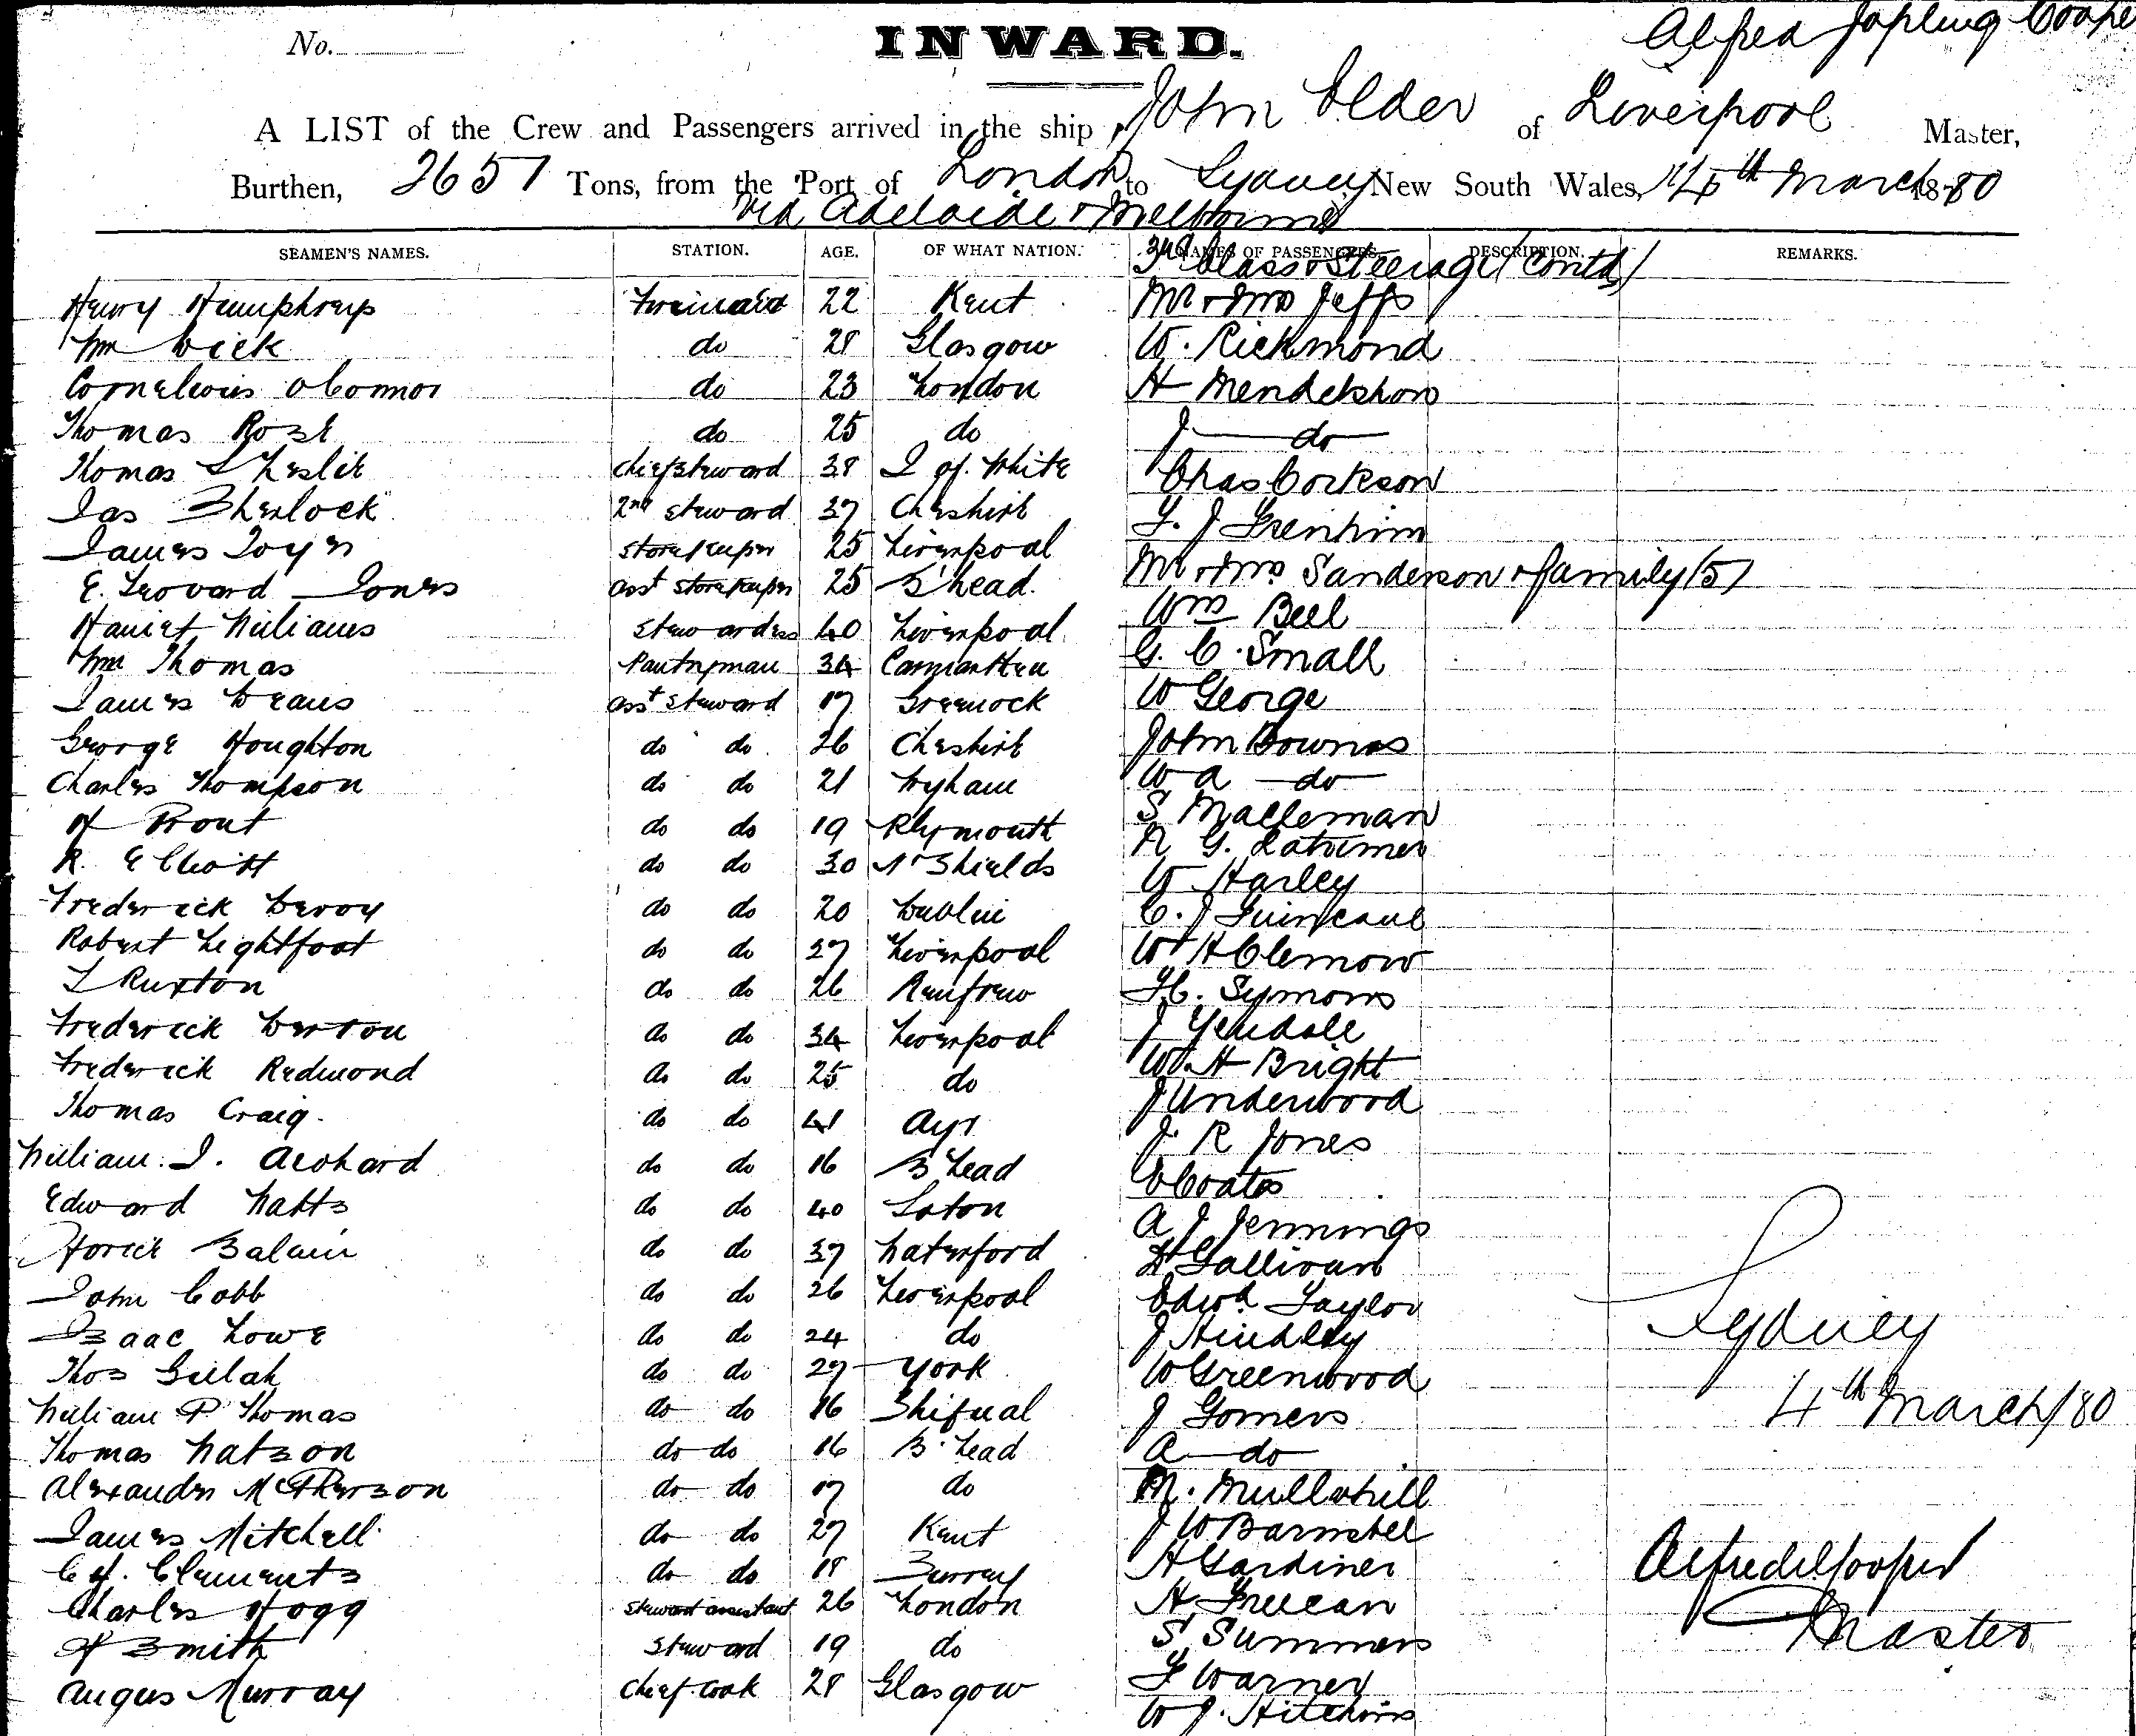 No.
INWARD.
Alfred Jopling Cooper
A LIST of the Crew and Passengers arrived in the ship John Elder of Liverpool Master,
Burthen, 2657 Tons, from the Port of London to Sydney New South Wales, 4th March 1880
via Adelaide & Melbourne
SEAMEN'S NAMES. STATION. AGE. OF WHAT NATION. NAMES OF PASSENGERS. DESCRIPTION. REMARKS.
3rd Class & Steerage (contd)
Henry Humphreys 22 Kent Mr & Mrs Jeffs
Wm Dick do 28 Glasgow W. Richmond
O'Connor do 23 London H Mendelshon
Thomas Rose do 25 do J do
Thomas S Leslie Chief Steward 38 I of White Chas Corkson
Jas Sherlock 2nd Steward 37 Cheshire F. J
James Storekeeper 25 Liverpool Mr & Mrs Sanderson & family (5)
E. Jones asst Storekeeper 25 B'head. Wm Bell
Harriet Williams Stewardess 40 Liverpool G. C. Small
Wm Thomas Pantryman 34 Carmarthen W George
James Deans asst Steward 17 Greenock John Downes
George Houghton do do 26 Cheshire W A do
Charles Thompson do do 21 S Malleman
H Prout do do 19 Plymouth G. Latimer
R. Elliott do do 30 N Shields W Harley
Frederick do do 20 Dublin C. J
Robert Lightfoot do do 37 Liverpool W H Clemow
L Ruxton do do 26 Renfrew Symons
Frederick do do 34 Liverpool J Yeudall
Frederick Redmond do do 25 do W. H Bright
Thomas Craig. do do 41 Ayr J Underwood
William. J. do do 16 B'head J. R Jones
Edward Watts do do 40 E Coates
do do 37 Waterford A J Jennings
John Cobb do do 26 Liverpool Gallivan
Isaac Lowe do do 24 do Edwd Taylor
Thos do do 29 York J Hindley
William P Thomas do do 16 Shifnal W Greenwood
Thomas Watson do do 16 B'head J Gomers
Alexander McPherson do do 17 do A do
James Mitchell do do 27 Kent M. Mullahill
Clements do do 18 Surrey J W
Charles Hogg Steward assistant 26 London H Gardiner
H Smith Steward 19 do H
Angus Murray Chief Cook 28 Glasgow S Summers
F Warner
W J. Hitchins
Sydney
4th March/80
Alfred J Cooper
Master